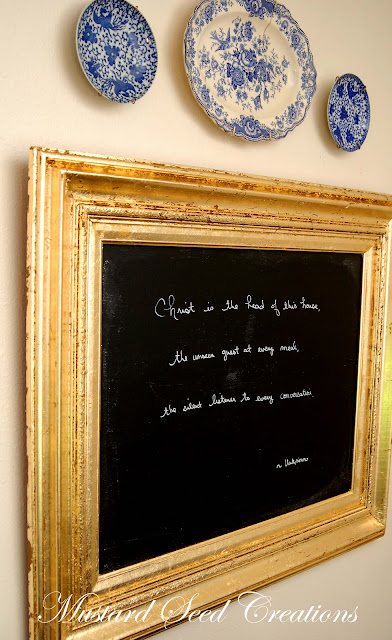 Christ is the head of this house,
the unseen guest at every meal,
the silent listener to every conversation.
~ Unknown
Mustard Seed Creations